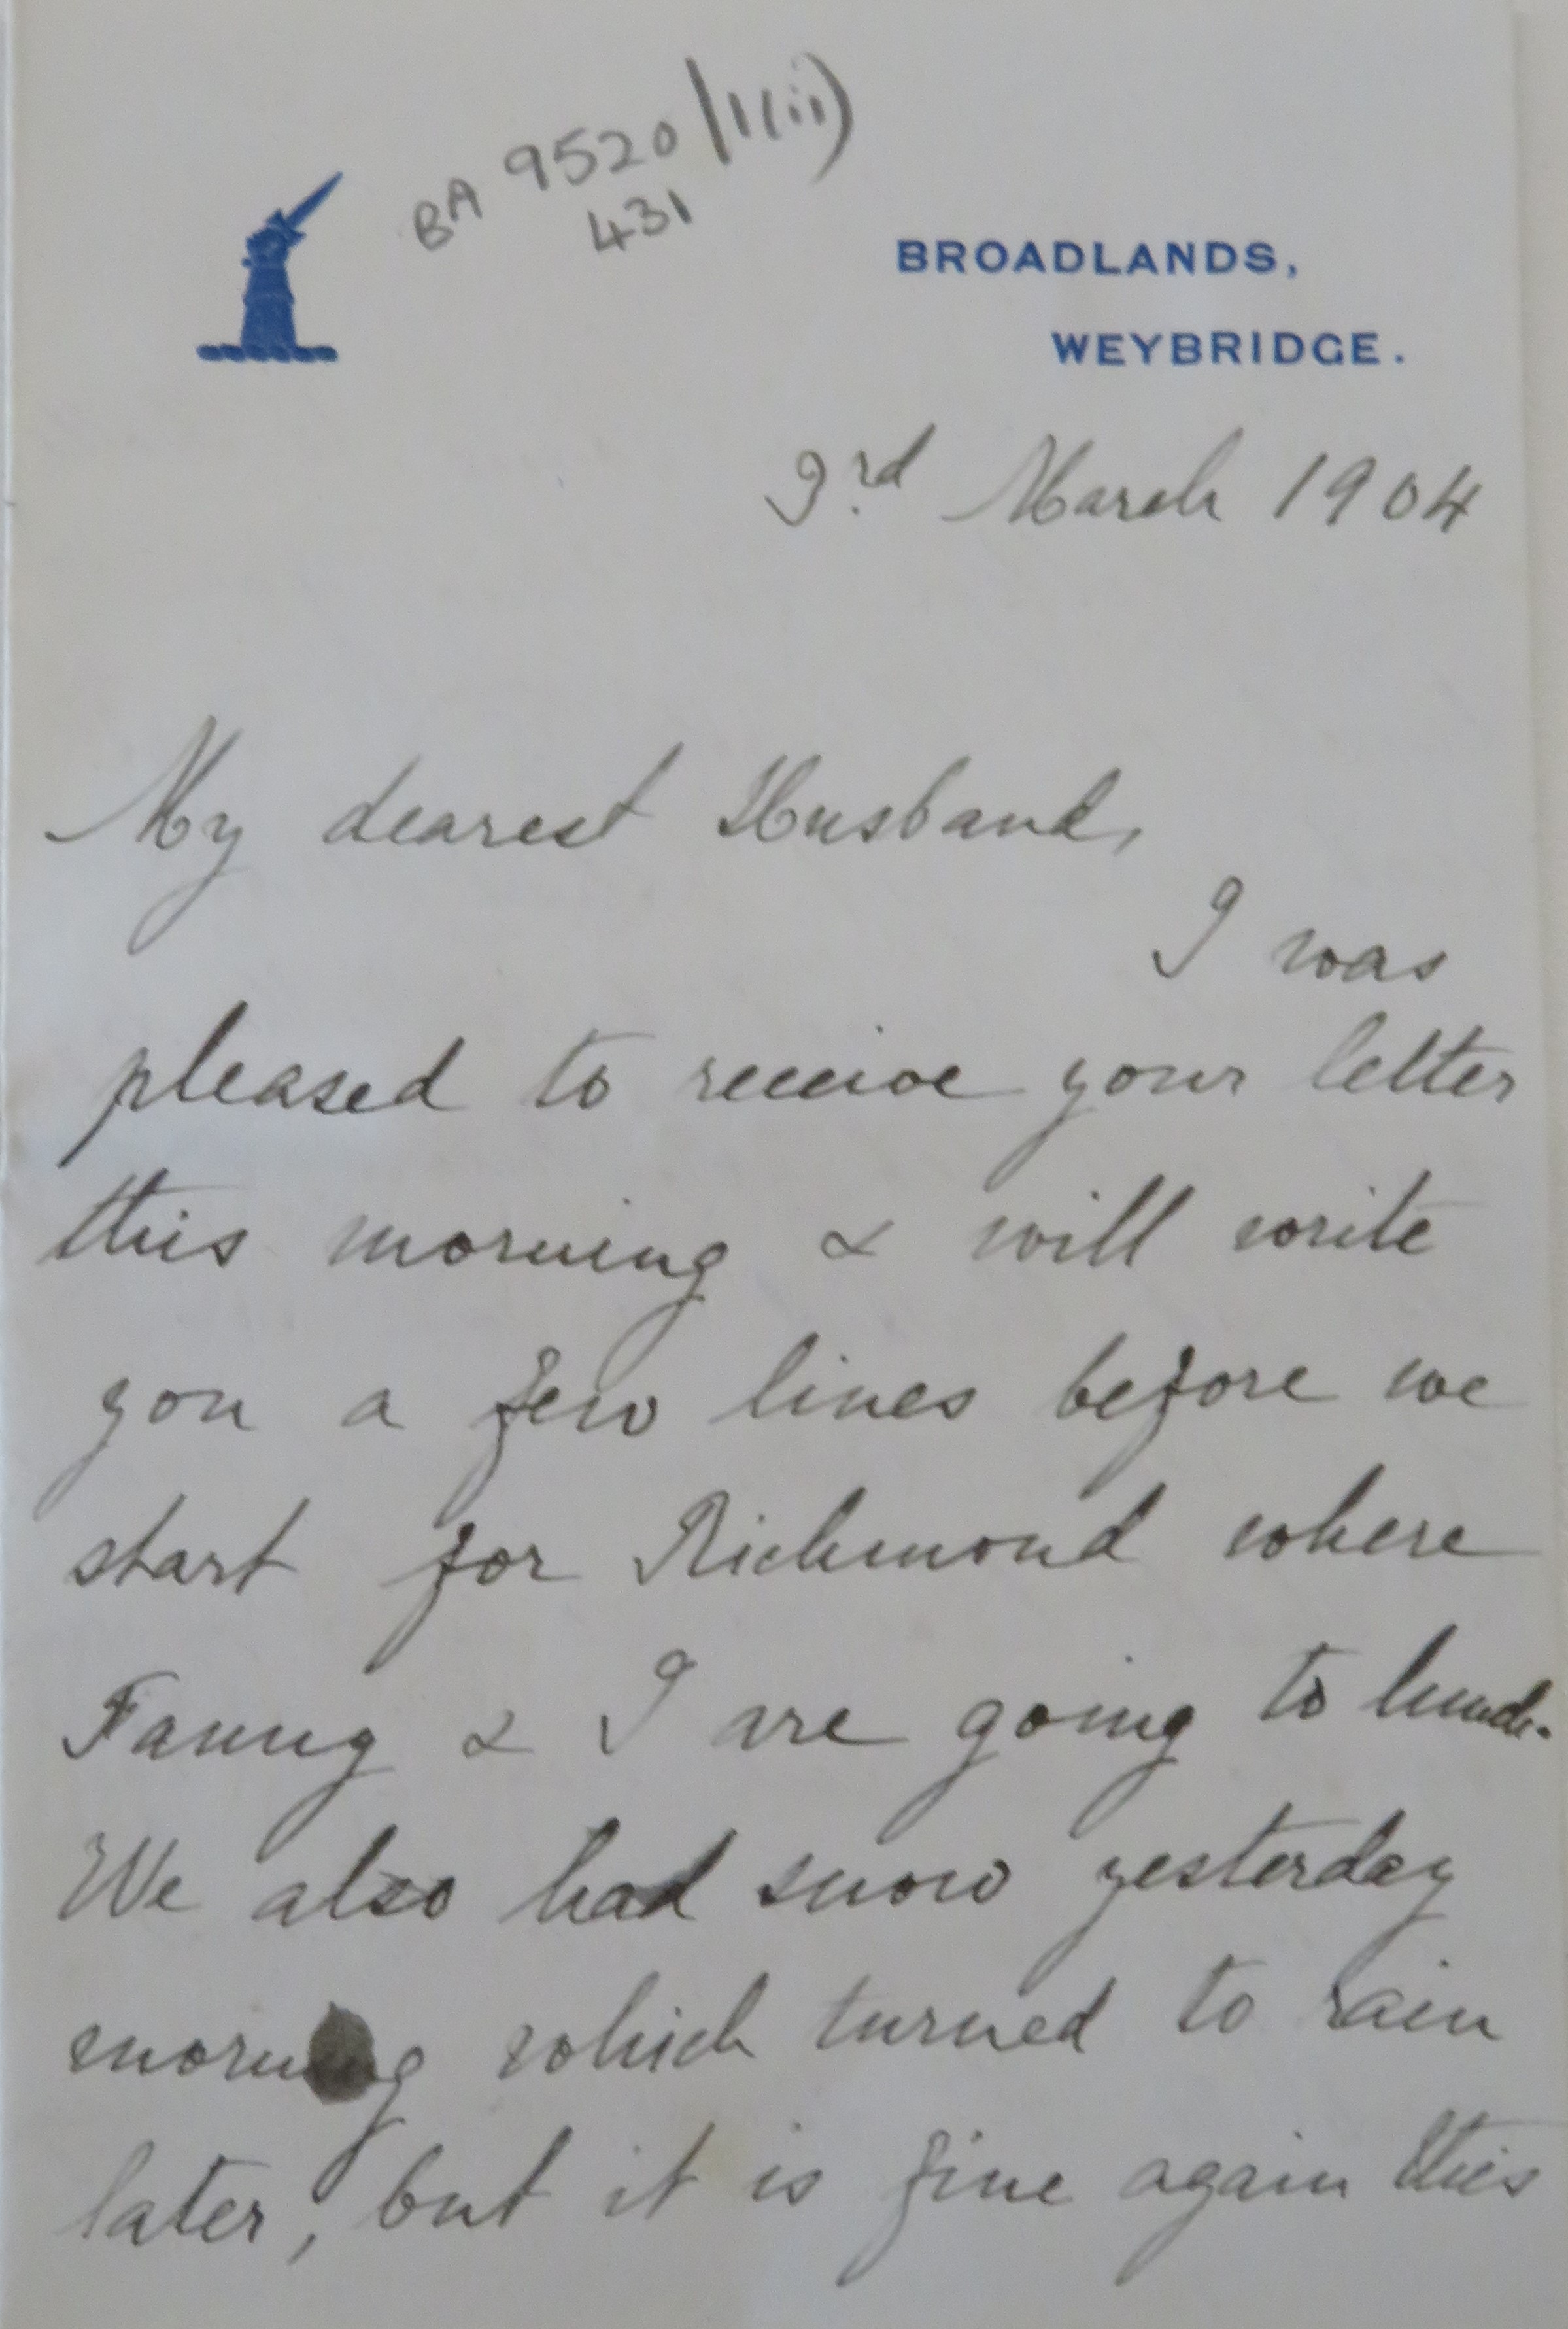 BA 9520/1(ii)
431
BROADLANDS,
WEYBRIDGE.
3rd March 1904
My dearest Husband,
I was
pleased to receive your letter
this morning & will write
you a few lines before we
start for Richmond where
Fanny & I are going to lunch.
We also had snow yesterday
morning which turned to rain
later, but it is fine again this